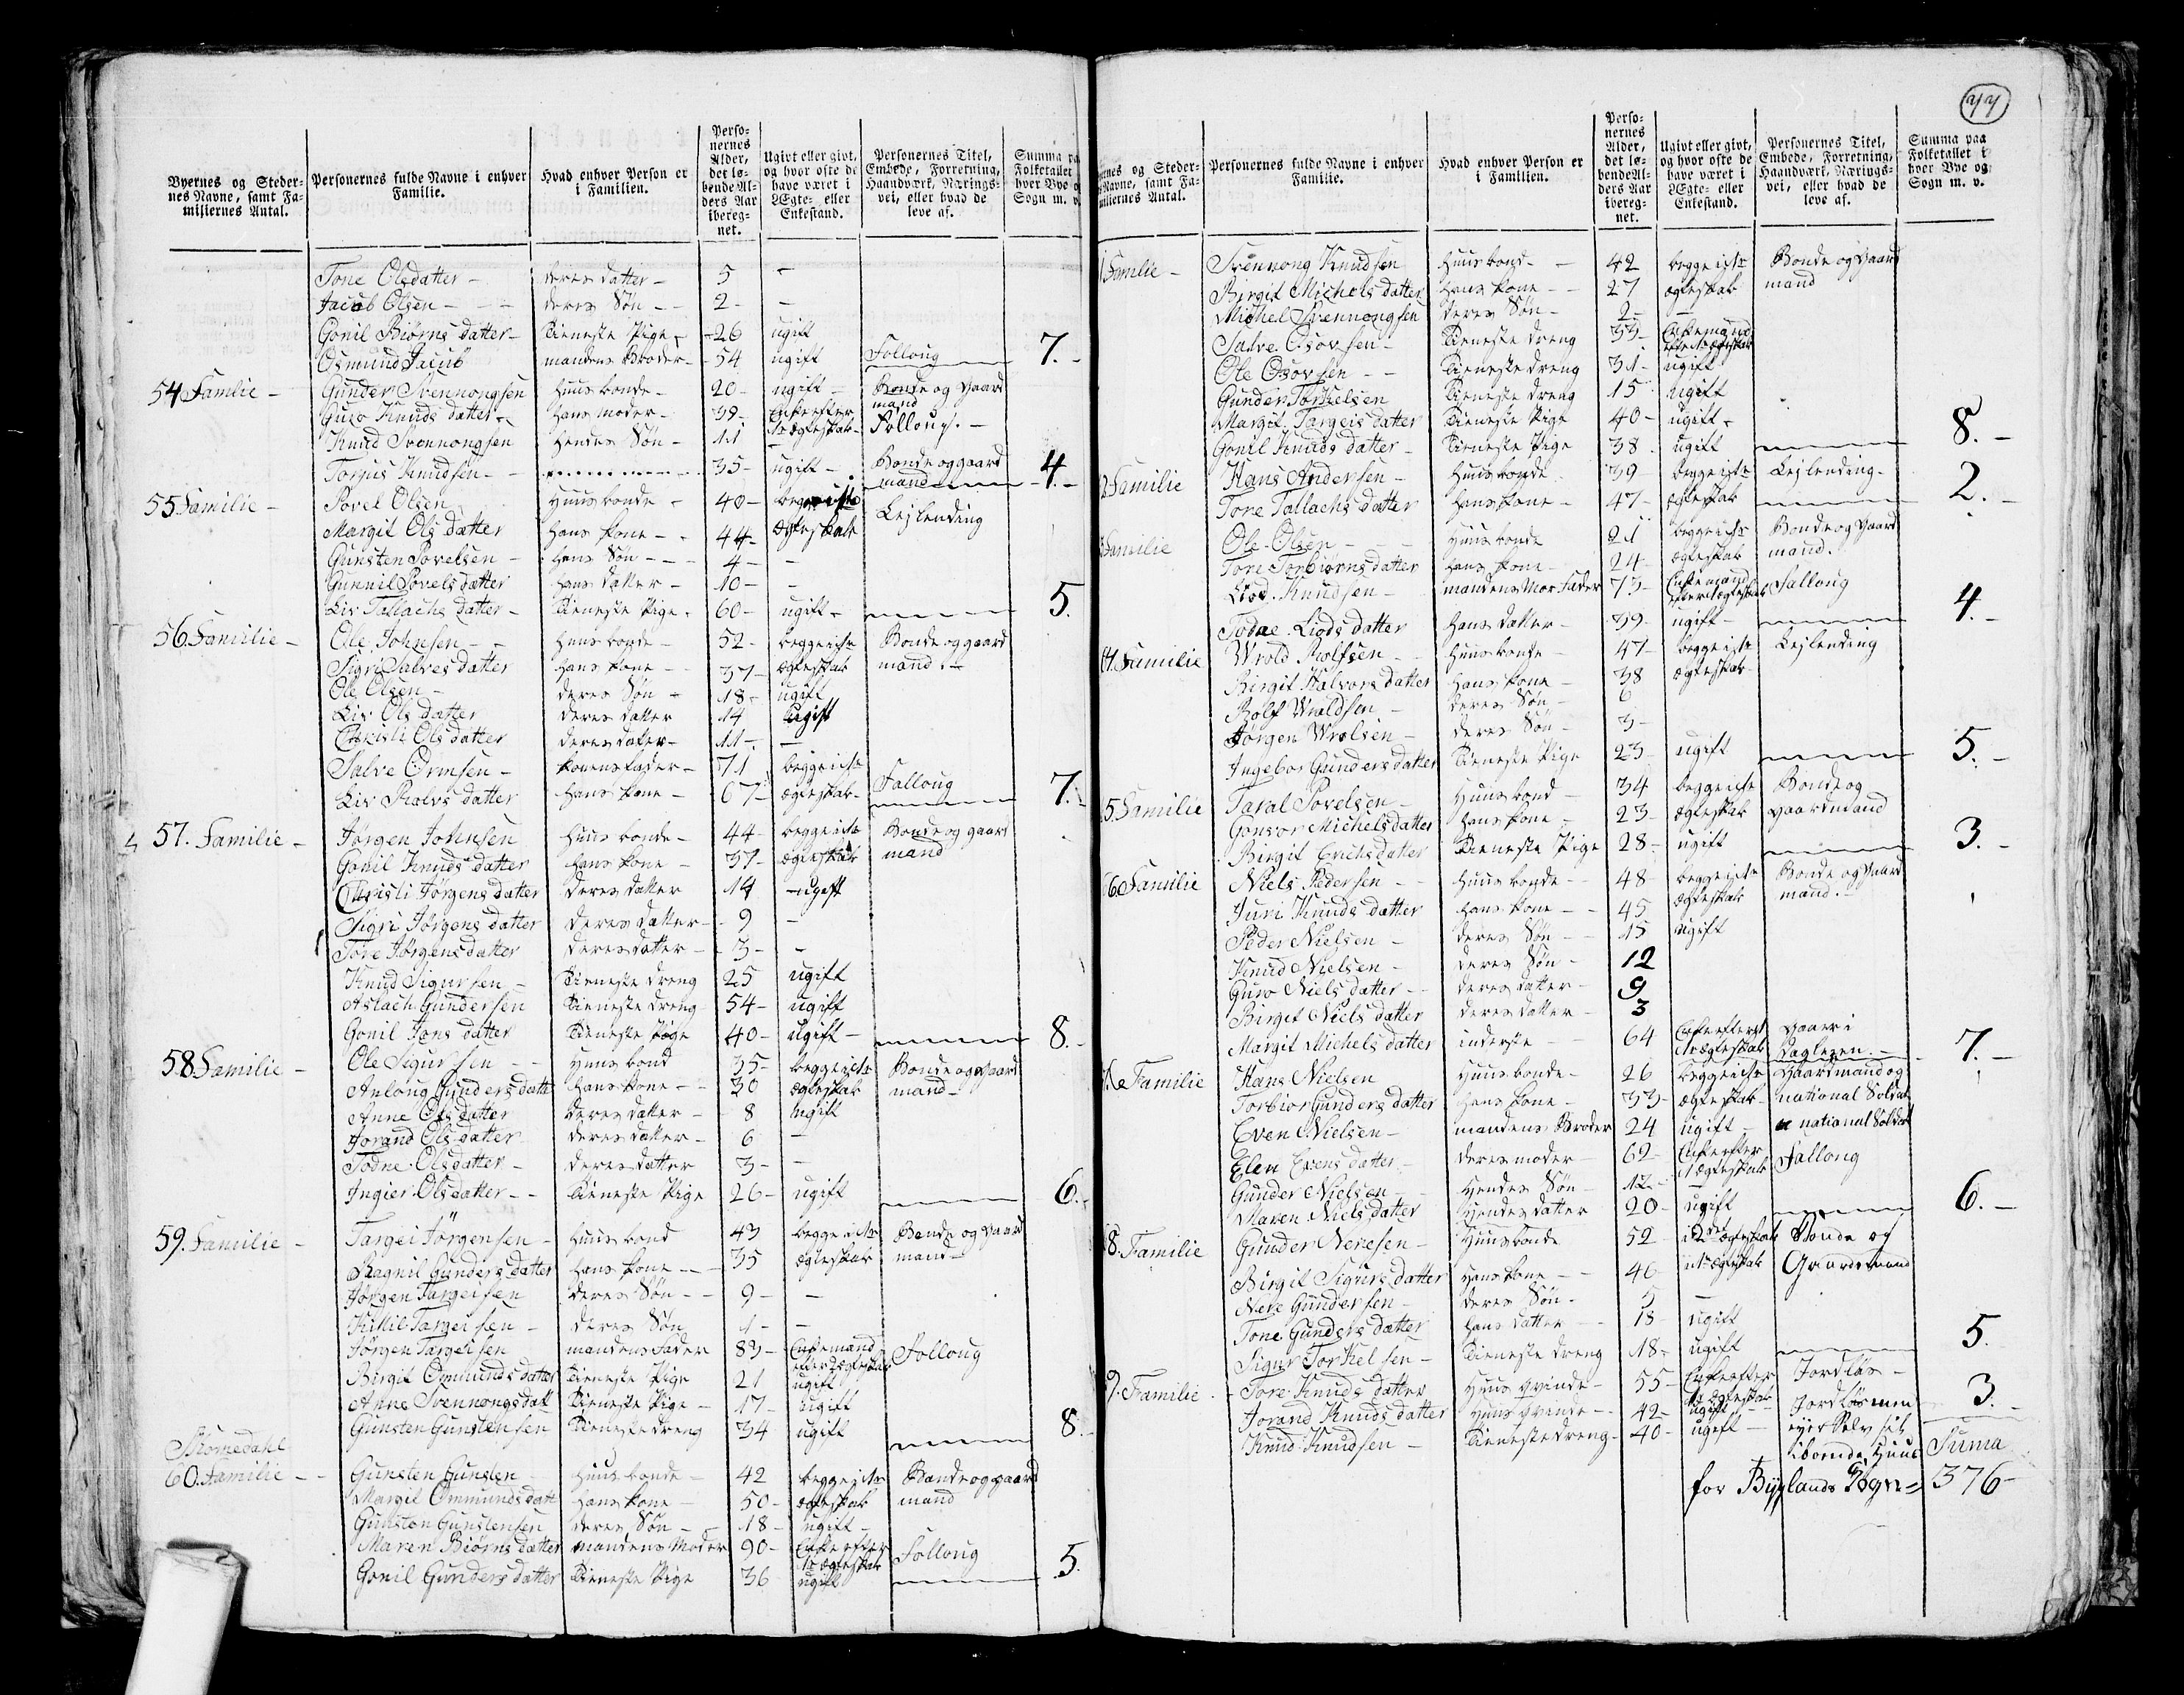 77
Byernes og Steder-
nes Navne, samt Fa-
miliernes Antal.
Personernes fulde Navne i enhver
Familie.
Hvad enhver Person er
i Familien.
Perso-
nernes
Alder,
det lø-
bende Al-
ders Aar
ibereg-
net.
Ugivt eller givt,
og hvor ofte de
have været i
Ægte- eller
Enkestand.
Personernes Titel,
Embede, Forretning,
Haandværk, Nærings-
vei, eller hvad de
leve af.
Summa pa
Folketallet
hver Bye o
Sogn m. v.
Tone Olsdatter - deres datter - 5 -
Jacob Olsen - deres Søn - 2 -
Gonil Biørns datter - Tieneste Pige - 26 ugift
Osmund Jacob mandens Broder - 54 ugift Folloug 7. -
54 Familie - Gunder Svennongsen huus bonde - 20 - ugift - Bonde og Gaard
mand
Guro Knuds datter - hans moder - 39 - Enke efter
1te ægteskab - Folloug. -
Knud Svennongsen hendes Søn - 11 -
Torjus Knudsen - 35 - ugift - Bonde og gaard
mand - 4. -
55 Familie - Povel Olsen Huus bonde - 40 - begge i 1ste
Margit Ols datter hans kone - 44 - Ægteskab Lejlending
Gunsten Povelsen - hans Søn - 4 -
Gunnil Povels datter hans datter - 10 -
Liv Tallachs datter - Tieneste Pige - 60 - ugift - 5.
56 Familie - Ole Johnsen - huus bonde - 52 - begge i 1ste Bonde og gaard
Sigri Salves datter hans kone - 37 - ægteskab mand. -
Ole Olsen - deres Søn - 18 - ugift
Liv Ols datter deres datter 14 ugift
Christi Ols datter deres datter - 11 -
Salve Ormsen - konens fader - 71 begge i 1ste
Liv Rolvs datter hans kone - 67 - ægteskab - Folloug 7. -
57. Familie - Jørgen Johnsen huus bonde - 44 - begge i 1ste Bonde og gaard
Gonil Knuds datter hans kone - 37 - ægteskab mand
Christi Jørgens datter deres datter 14 - ugift
Sigri Jørgens datter deres datter - 9 -
Tore Jørgens datter deres datter - 3 -
Knud Sigursen - Tieneste dreng 25 ugift
Aslach Gundersen Tieneste dreng 54 - ugift
Gonil Jons datter Tieneste Pige 40 - ugift - 8. -
58 Familie - Ole Sigursen - Huus bond 35 - begge i 1ste Bonde og gaard
Anloug Gunders datt hans kone - 30 ægteskab mand -
Anne Ols datter deres datter - 8 ugift
Jorand Ols datter deres datter - 6 -
Todne Olsdatter - deres datter 3 - -
Ingier Olsdatter - Tieneste Pige 26 - ugift 6. -
59. Familie - Targei Jørgensen - huus bond 43 begge i 1ste Bonde og gaard
Ragnil Gunders datter hans kone - 35 ægteskab mand -
Jørgen Targeisen deres Søn - 9 - -
Kittil Targeisen - deres Søn 1 - -
Jørgen Targeisen mandens Fader 83 - Enkemand
efter 1 ægteskab Folloug
Birgit Omunds datter Tieneste Pige 21 ugift
Anne Svennongs datt Tieneste Pige - 17 - ugift
Gunsten Gunstensen Tieneste dreng 34 ugift 8. -
60. Familie - Gunsten Gunsten huus bonde - 42 begge i 1ste Bonde og gaard
Margit Ommunds datt hans kone - 50 - ægteskab mand
Gunsten Gunstensen deres Søn - 18 - ugift -
Maren Biørns datter mandens Moder 90 - Enke efter
1te ægteskab Folloug
Gonil Gunders datter Tieneste Pige 36 ugift 5.
ernes og Steder-
Navne, samt Fa-
miliernes Antal.
Personernes fulde Navne i enhver
Familie.
Hvad enhver Person er
i Familien.
Perso-
nernes
Alder,
det lø-
bende Al-
ders Aar
ibereg-
net.
Ugivt eller givt,
og hvor ofte de
have været i
Ægte- eller
Enkestand.
Personernes Titel,
Embede, Forretning,
Haandværk, Nærings-
vei, eller hvad de
leve af.
Summa paa
Folketallet i
hver Bye og
Sogn m. v.
1 Familie - Svennong Knudsen huus bond - 42 begge i 1ste Bonde og Gaard
Birgit Michels datter hans kone - 27 ægteskab mand
Michel Svennongsen deres Søn - 2 -
Salve Osovsen - Tieneste dreng 33 - Enkemand
efter 1te ægteskab
Ole Osovsen - Tieneste dreng 31 - ugift
Gunder Torkelsen Tieneste dreng 15 ugift
Margit Targeis datter Tieneste Pige 40 - ugift -
Gonil Knuds datter - Tieneste Pige 38 ugift 8. -
2 Familie Hans Andersen - Huus bonde 39 begge i 1ste Lejlending -
Tore Tallachs datter hans kone - 47 - ægteskab 2. -
Familie Ole Olsen - Huus bonde 21 begge i 1ste Bonde og Gaard
Tore Torbiørns datter hans kone - 24 - ægteskab mand.
Liod Knudsen - mandens Mor Fader 73 - Enkemand
efter 1 ægteskab Folloug
Todne Liods datter hans datter - 39 - ugift - 4. -
4. Familie Wrold Rolfsen - huus bonde - 47 - begge i 1ste Lejlending
Birgit Halvors datter hans kone - 38 ægteskab
Rolf Wroldsen - deres Søn - 6
Jørgen Wrolsen - deres Søn - 3 -
Ingebor Gunders datter Tieneste Pige 23 - ugift 5. -
5. Familie Taral Povelsen - Huus bond - 34 begge i 1ste Bonde og
Gonvor Michels datter hans kone - 23 - ægteskab gaardmand
Birgit Erichs datter Tieneste Pige 28 - ugift 3. -
6 Familie Niels Pedersen - huus bonde - 48 - begge i 1ste Bonde og Gaard
Juri Knuds datter hans kone - 45 ægteskab mand. -
Peder Nielsen - deres Søn - 15 ugift
Knud Nielsen - deres Søn - 12
Guro Niels datter - deres datter - 9
Birgit Niels datter deres datter - 3
Margit Michels datter inderste - 64 Enke efter
1te ægteskab Gaar i
Dagleyen - 7. -
Familie Hans Nielsen Huus bonde - 26 begge i 1ste Gaardmand og
Torbior Gunders datter hans kone - 33 - ægteskab - national Soldat
Even Nielsen - mandens Broder 24 ugift - national Soldat
Elen Evens datter deres moder - 62 - Enke efter
1 ægteskab Folloug
Gunder Nielsen - Hendes Søn - 12 - -
Maren Niels datter Hendes datter 20 - ugift 6. -
8. Familie Gunder Nevesen - Huus bonde 52 - i 2det ægteskab Bonde og
Birgit Sigurs datter Hans kone - 46 - i 1te ægteskab Gaardmand
Neve Gundersen - deres Søn - 5 -
Tone Gunders datter hans datter - 18 - ugift
Sigur Torkelsen - Tieneste dreng 18 - ugift 5.
9. Familie - Tore Knuds datter Huus qvinde - 55 - Enke efter
1te ægteskab Jordløs -
Jorand Knuds datter Huus qvinde - 42 - ugift - Jordløs men 3. -
Knud Knudsen - Tieneste dreng - 40 - ugift - eyer selv sit
iboende Huus Suma
for Byglands Sogn = 376 -